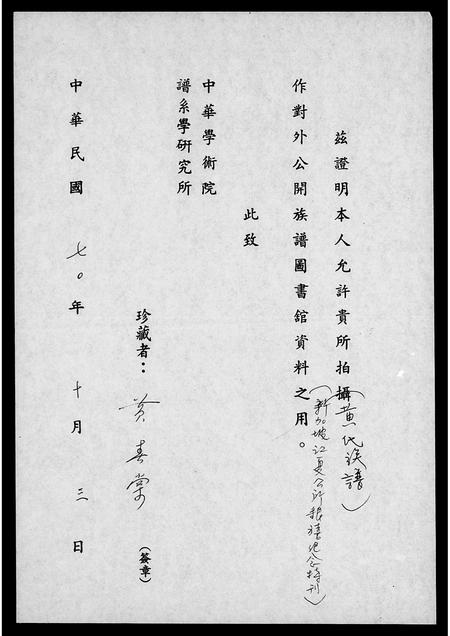 茲證明本人允許貴所拍攝(黃氏族譜)
作對外公開族譜圖書館資料之用。
(新加坡江夏公所報禧紀念特刊)
此致
中華學術院
譜系學研究所
珍藏者：黃春棠
(簽章)
中華民國七〇年十月三日